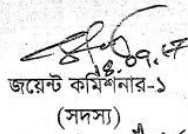 জয়েন্ট কমিশনার-১
(সদস্য)